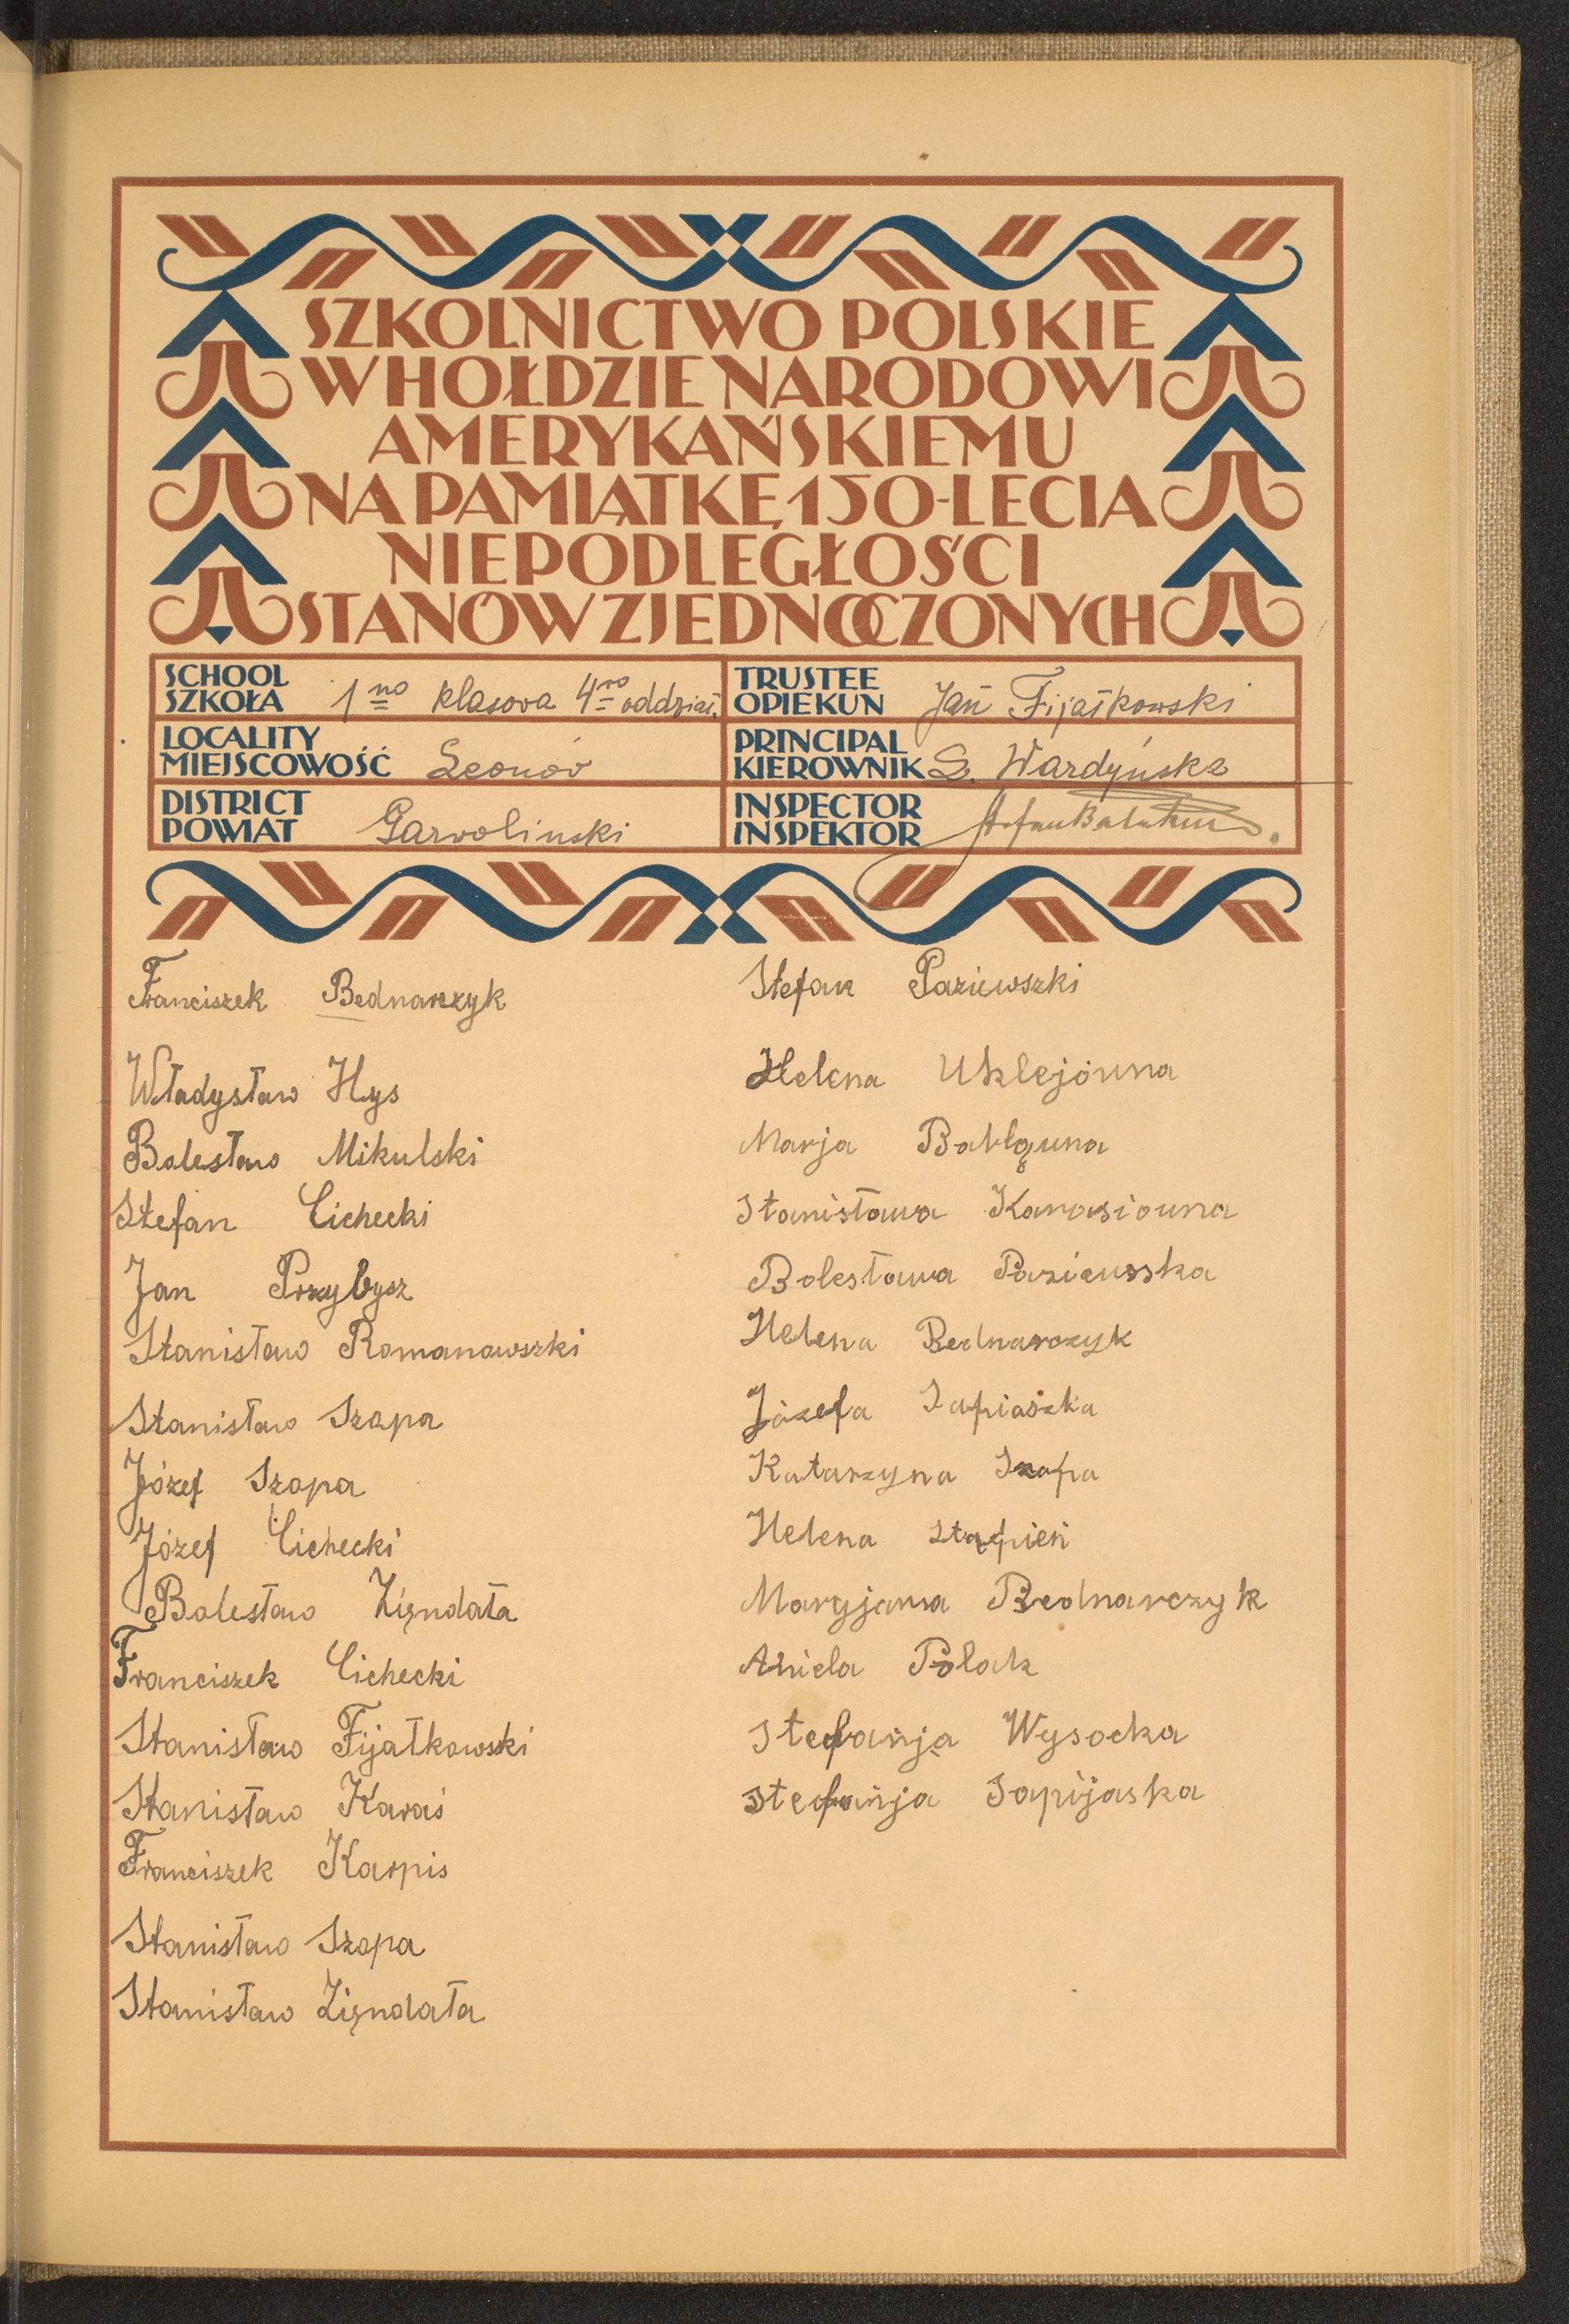 SZKOLNICTWO POLSKIE
W HOŁDZIE NARODOWI
AMERYKAŃSKIEMU
NA PAMIĄTKĘ 150-LECIA
NIEPODLEGŁOŚCI
STANÓW ZJEDNOCZONYCH
SCHOOL
SZKOŁA 1no klasowa 4ro oddział.
TRUSTEE
OPIEKUN Jan Fijałkowski
LOCALITY
MIEJSCOWOŚĆ Leonów
PRINCIPAL
KIEROWNIK S. Wardyńska
DISTRICT
POWIAT Garwoliński
INSPECTOR
INSPEKTOR Stefan
Franciszek Bednarzyk
Władysław Hys
Bolesław Mikulski
Stefan Cichecki
Jan Przybysz
Stanisław Romanowszki
Stanisław Szopa
Józef Szopa
Józef Cichecki
Bolesław Zięndała
Franciszek Cichecki
Stanisław Fijałkowski
Stanisław Karaś
Franciszek Karpis
Stanisław Szopa
Stanisław Zięndała
Stefan Paziewszki
Helena Uklejówna
Marja
Stanisława Karasiówna
Bolesława Paziewska
Helena Bednarczyk
Józefa Sapiaszka
Katarzyna Szopa
Helena Stąpień
Maryjanna Bednarczyk
Aniela Polak
Stefańja Wysocka
Stefańja Sapijaska